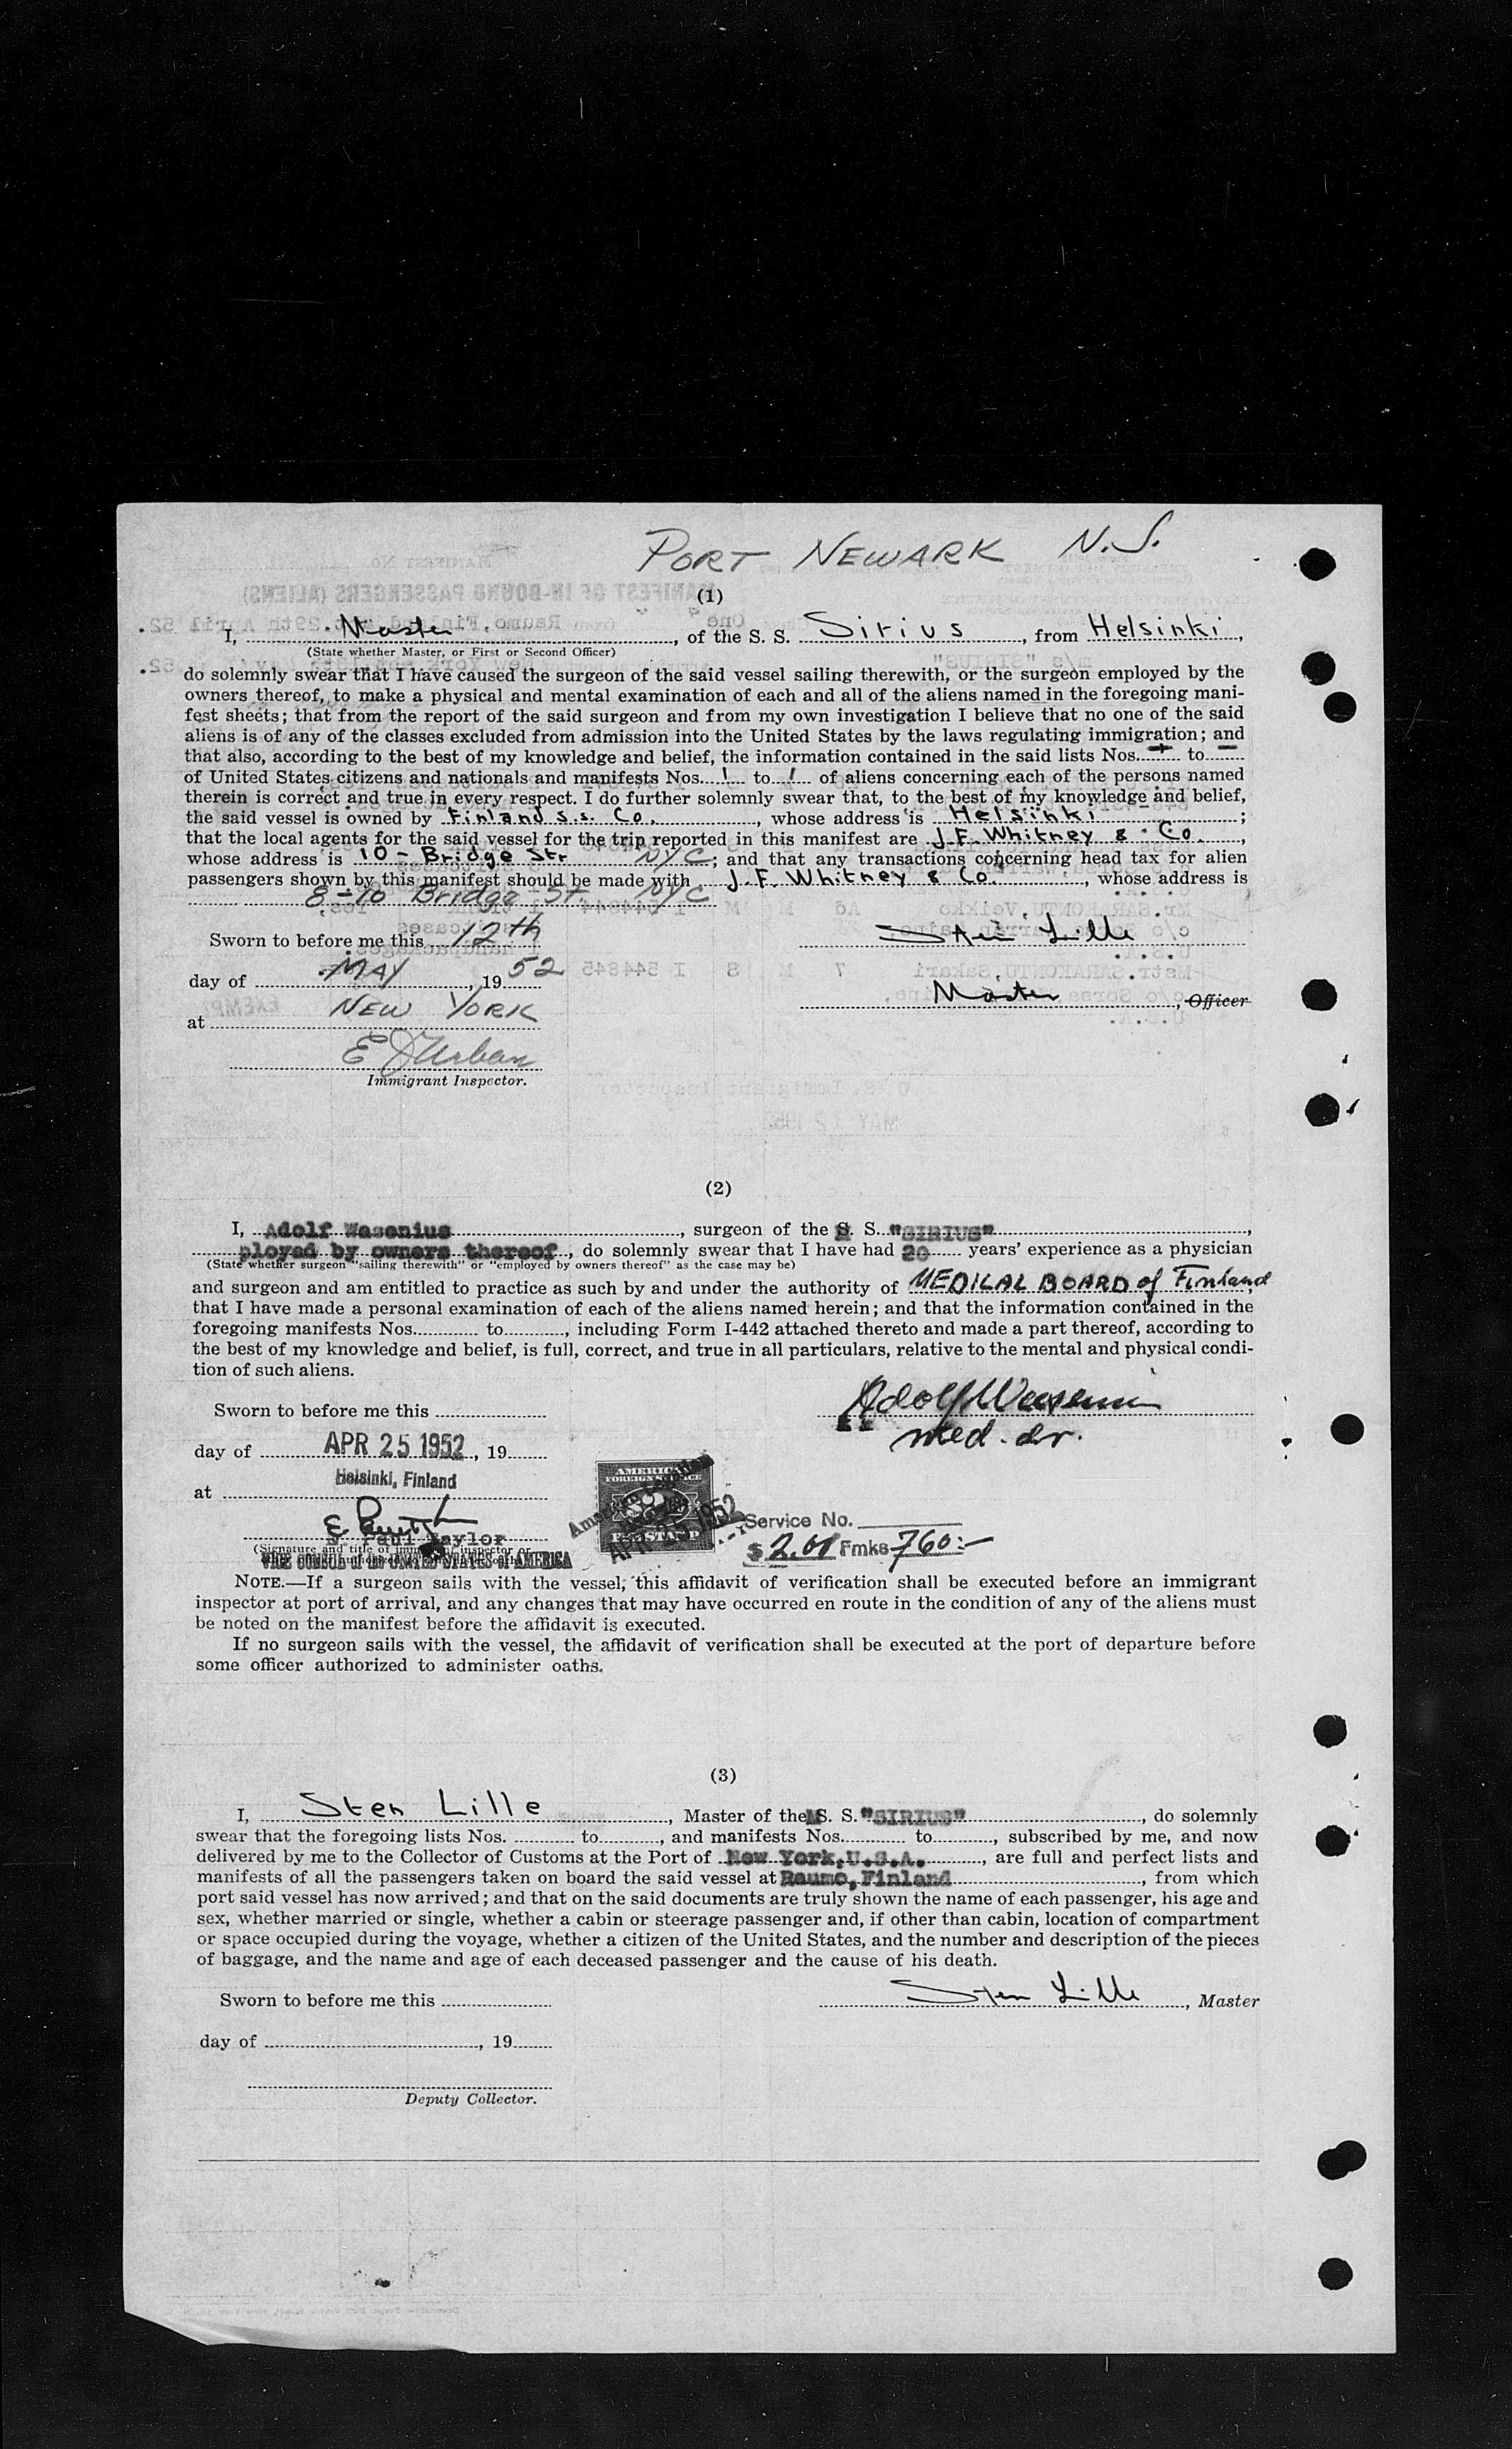 PORT NEWARK N.J.
(1)
I, Master, of the S. S. Sirius, from Helsinki,
(State whether Master, or First or Second Officer)
do solemnly swear that I have caused the surgeon of the said vessel sailing therewith, or the surgeon employed by the
owners thereof, to make a physical and mental examination of each and all of the aliens named in the foregoing mani-
fest sheets; that from the report of the said surgeon and from my own investigation I believe that no one of the said
aliens is of any of the classes excluded from admission into the United States by the laws regulating immigration; and
that also, according to the best of my knowledge and belief, the information contained in the said lists Nos. — to —
of United States citizens and nationals and manifests Nos. 1 to 1 of aliens concerning each of the persons named
therein is correct and true in every respect. I do further solemnly swear that, to the best of my knowledge and belief,
the said vessel is owned by Finland s.s. Co., whose address is Helsinki;
that the local agents for the said vessel for the trip reported in this manifest are J.F. Whitney & Co.,
whose address is 10 - Bridge Str NYC; and that any transactions concerning head tax for alien
passengers shown by this manifest should be made with J.F. Whitney & Co., whose address is
8-10 Bridge St. NYC
Sworn to before me this 12th
Sten Lille
day of MAY, 1952
Master, Officer
at NEW YORK
E J Urban
Immigrant Inspector.
(2)
I, Adolf Wasenius, surgeon of the S. S. "SIRIUS",
ployed by owners thereof, do solemnly swear that I have had 20 years' experience as a physician
(State whether surgeon "sailing therewith" or "employed by owners thereof" as the case may be)
and surgeon and am entitled to practice as such by and under the authority of MEDICAL BOARD of Finland,
that I have made a personal examination of each of the aliens named herein; and that the information contained in the
foregoing manifests Nos. to, including Form I-442 attached thereto and made a part thereof, according to
the best of my knowledge and belief, is full, correct, and true in all particulars, relative to the mental and physical condi-
tion of such aliens.
Adolf Wasenius
Sworn to before me this
med. dr.
day of APR 25 1952, 19
at Helsinki, Finland
AMERICAN
FOREIGN SERVICE
2
FEE STAMP
APR 25 1952
Service No.
$ 2.00 Fmks 760:-
Paul Taylor
(Signature and title of immigrant inspector or
VICE CONSUL of the UNITED STATES of AMERICA
NOTE.—If a surgeon sails with the vessel, this affidavit of verification shall be executed before an immigrant
inspector at port of arrival, and any changes that may have occurred en route in the condition of any of the aliens must
be noted on the manifest before the affidavit is executed.
If no surgeon sails with the vessel, the affidavit of verification shall be executed at the port of departure before
some officer authorized to administer oaths.
(3)
I, Sten Lille, Master of the M S. S. "SIRIUS", do solemnly
swear that the foregoing lists Nos. to, and manifests Nos. to, subscribed by me, and now
delivered by me to the Collector of Customs at the Port of New York, U.S.A., are full and perfect lists and
manifests of all the passengers taken on board the said vessel at Raumo, Finland, from which
port said vessel has now arrived; and that on the said documents are truly shown the name of each passenger, his age and
sex, whether married or single, whether a cabin or steerage passenger and, if other than cabin, location of compartment
or space occupied during the voyage, whether a citizen of the United States, and the number and description of the pieces
of baggage, and the name and age of each deceased passenger and the cause of his death.
Sworn to before me this
Sten Lille, Master
day of, 19
Deputy Collector.